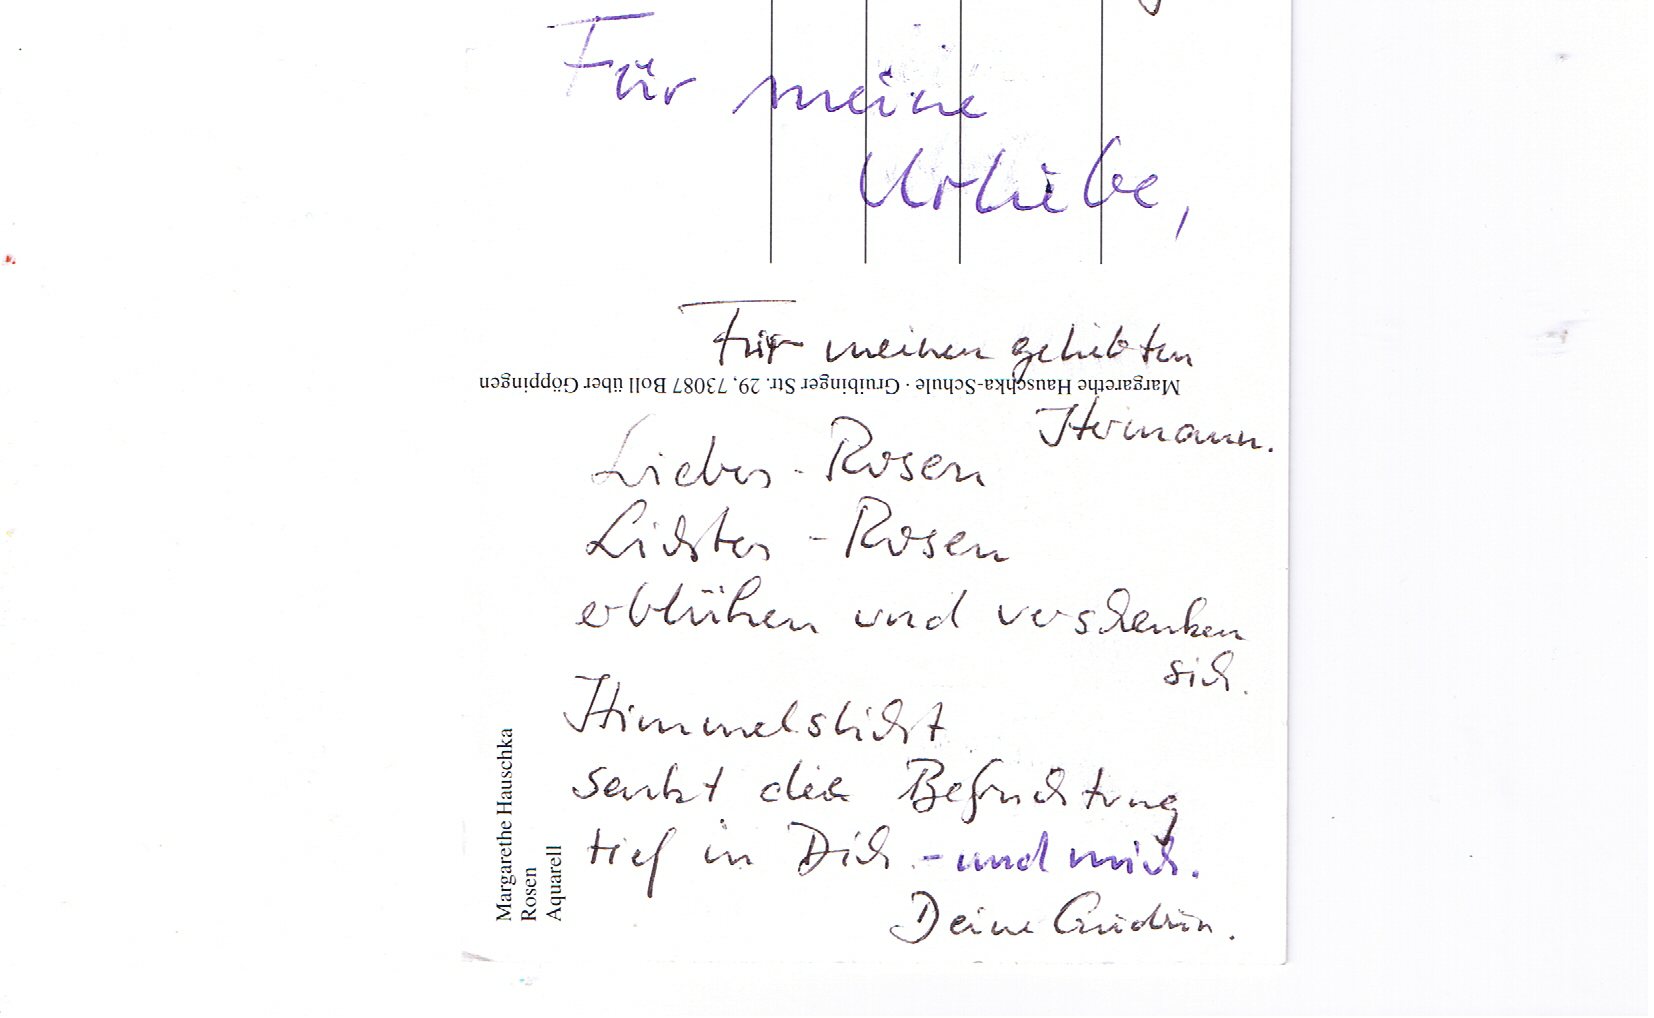 Für meine
Urliebe,
Für meinen geliebten
Margarethe Hauschka-Schule · Gruibinger Str. 29, 73087 Boll über Göppingen
Hermann.
Liebes-Rosen
Lichtes-Rosen
erblühen und verschenken
sich.
Himmelslicht
senkt die Befruchtung
tief in Dich - und mich.
Deine Gudrun.
Margarethe Hauschka
Rosen
Aquarell